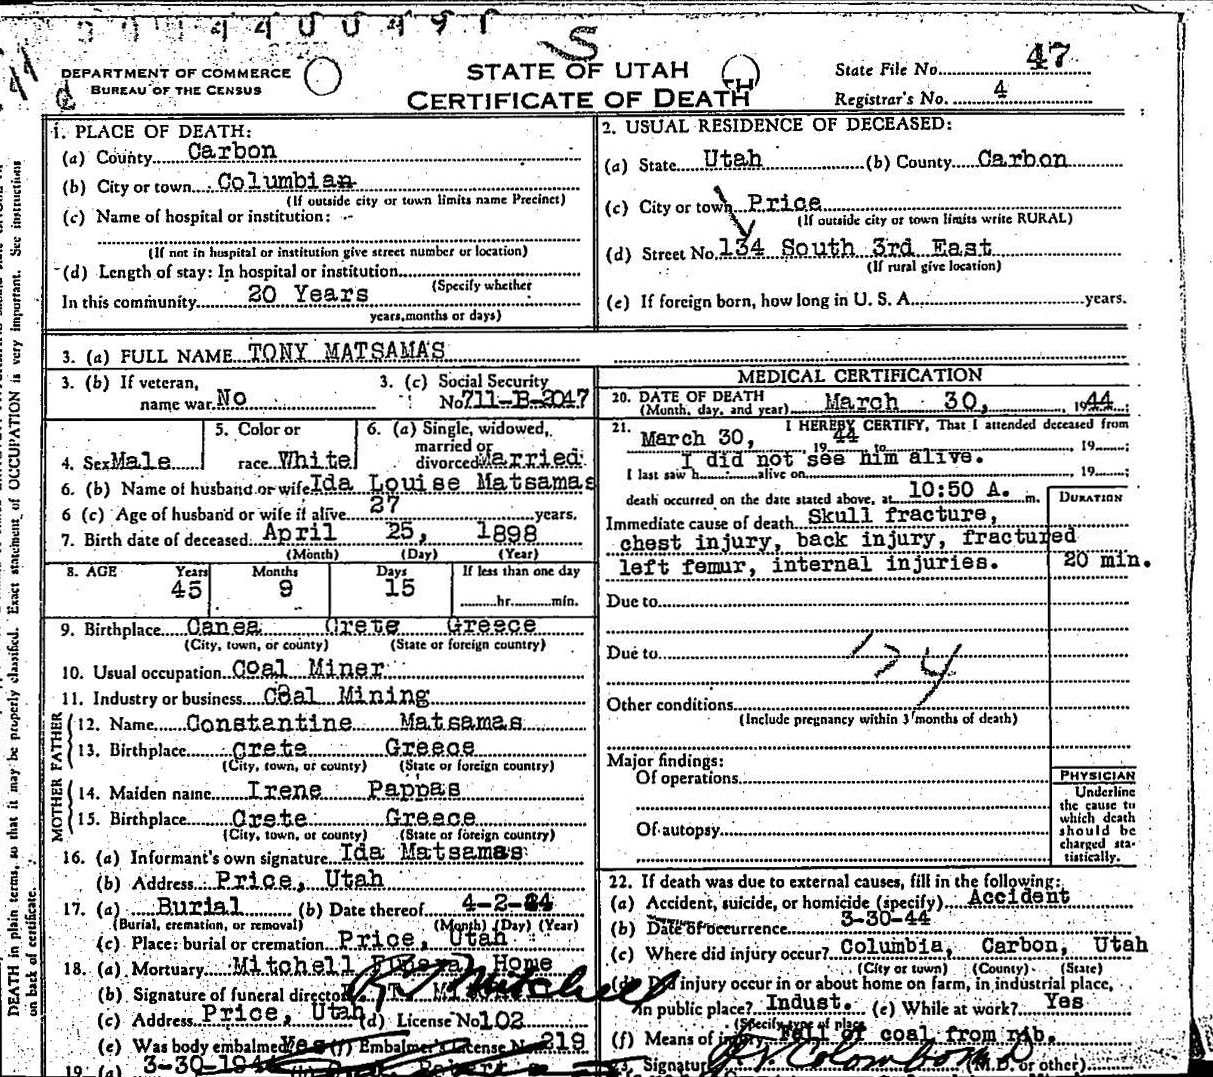 DEPARTMENT OF COMMERCE
BUREAU OF THE CENSUS
STATE OF UTAH
CERTIFICATE OF DEATH
State File No. 47
Registrar's No. 4
1. PLACE OF DEATH:
(a) County Carbon
(b) City or town Columbian
(If outside city or town limits name Precinct)
(c) Name of hospital or institution: --
(If not in hospital or institution give street number or location)
(d) Length of stay: In hospital or institution
(Specify whether
In this community 20 Years
years, months or days)
2. USUAL RESIDENCE OF DECEASED:
(a) State Utah (b) County Carbon
(c) City or town Price
(If outside city or town limits write RURAL)
(d) Street No. 134 South 3rd East
(If rural give location)
(e) If foreign born, how long in U. S. A. years.
3. (a) FULL NAME TONY MATSAMAS
3. (b) If veteran, name war No
3. (c) Social Security No 711-B-2047
4. Sex Male
5. Color or race White
6. (a) Single, widowed, married or divorced Married
6. (b) Name of husband or wife Ida Louise Matsamas
6 (c) Age of husband or wife if alive 27 years.
7. Birth date of deceased April 25, 1898
(Month) (Day) (Year)
8. AGE Years Months Days If less than one day
45 9 15 hr. min.
9. Birthplace Canea Crete Greece
(City, town, or county) (State or foreign country)
10. Usual occupation Coal Miner
11. Industry or business Coal Mining
FATHER
12. Name Constantine Matsamas
13. Birthplace Crete Greece
(City, town, or county) (State or foreign country)
MOTHER
14. Maiden name Irene Pappas
15. Birthplace Crete Greece
(City, town, or county) (State or foreign country)
16. (a) Informant's own signature Ida Matsamas
(b) Address Price, Utah
17. (a) Burial (b) Date thereof 4-2-44
(Burial, cremation, or removal) (Month) (Day) (Year)
(c) Place: burial or cremation Price, Utah
18. (a) Mortuary Mitchell Funeral Home
(b) Signature of funeral director Mitchell
(c) Address Price, Utah (d) License No 102
(e) Was body embalmed Yes (f) Embalmer's License No 219
19. (a) 3-30-194
MEDICAL CERTIFICATION
20. DATE OF DEATH
(Month, day, and year) March 30, 1944
21. I HEREBY CERTIFY, That I attended deceased from
March 30, 1944 to 19
I did not see him alive.
I last saw h alive on 19
death occurred on the date stated above, at 10:50 A. m.
DURATION
Immediate cause of death Skull fracture,
chest injury, back injury, fractured
left femur, internal injuries. 20 min.
Due to
Due to
174
Other conditions
(Include pregnancy within 3 months of death)
Major findings:
Of operations
Of autopsy
PHYSICIAN
Underline
the cause to
which death
should be
charged sta-
tistically.
22. If death was due to external causes, fill in the following:
(a) Accident, suicide, or homicide (specify) Accident
(b) Date of occurrence 3-30-44
(c) Where did injury occur? Columbia, Carbon, Utah
(City or town) (County) (State)
(d) Did injury occur in or about home on farm, in industrial place,
in public place? Indust. (e) While at work? Yes
(Specify type of place)
(f) Means of injury Fall of coal from rib.
23. Signature (M.D. or other)
DEATH in plain terms, so that it may be properly classified. Exact statement of OCCUPATION is very important. See instructions
on back of certificate.